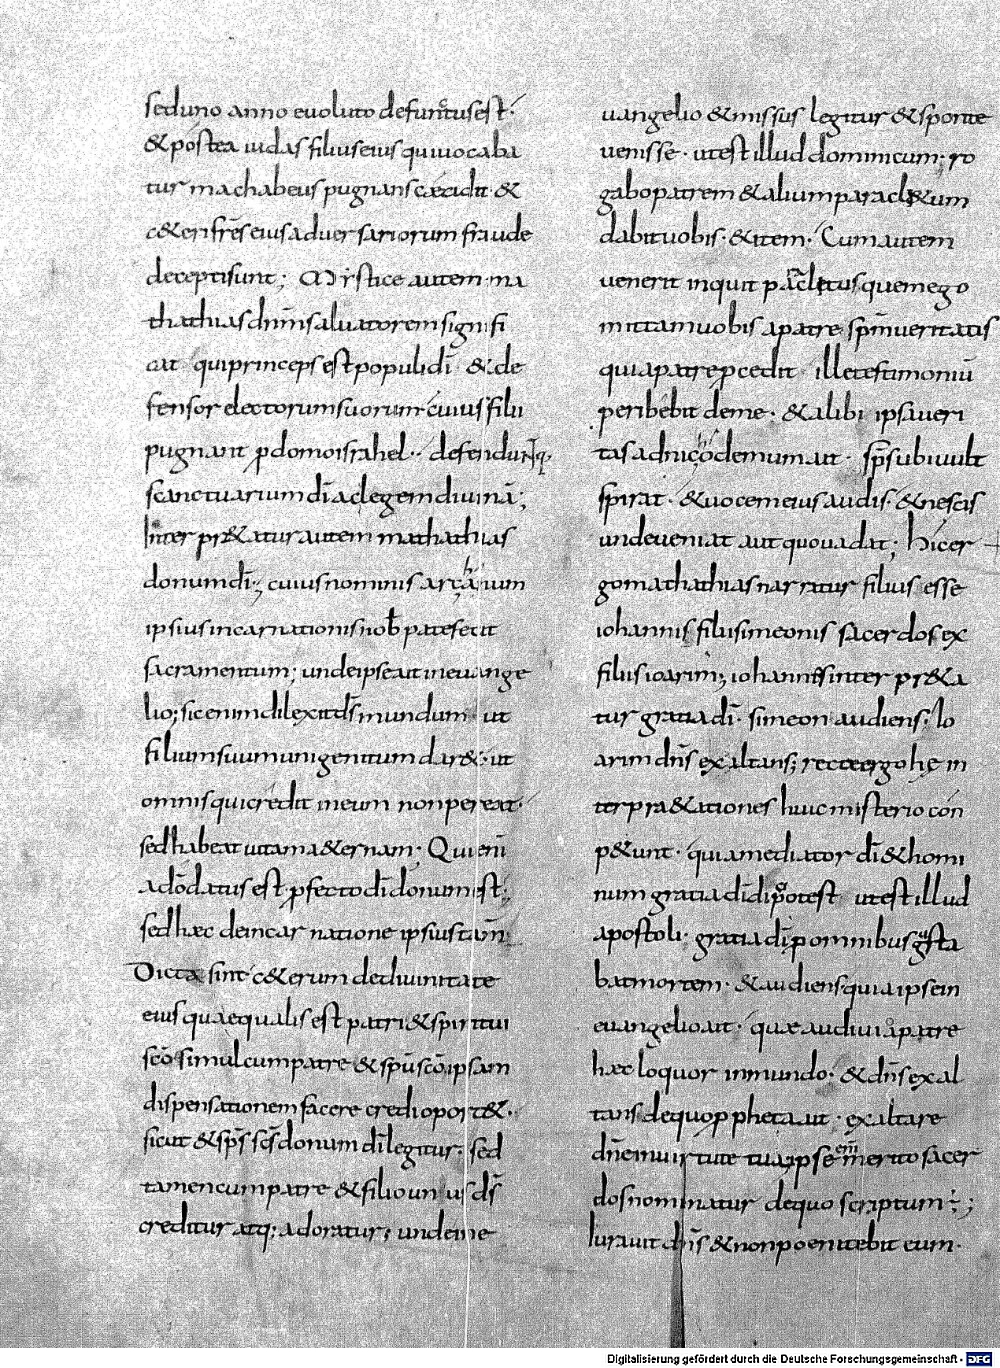 sed uno anno euoluto defunctus est·
& postea iudas filius eius qui uocaba
tur machabeus pugnans cęcidit· &
c&eri fr̄es eius aduersariorum fraude
decepti sunt; Mystice autem ma
thathias dn̄m saluatorem signifi
cat qui princeps est populi dī & de
fensor electorum suorum cuius filii
pugnant ꝑ domo israhel· defendunt q;
sanctuarium dī ac legem diuinā;
Interpr&atur autem mathathias
donum dī; cuius nominis archanum
ipsius incarnationis nob̄ patefecit
sacramentum; unde ipse ait in euange
lio; sic enim dilexit ds̄ mundum· ut
filium suum unigenitum dar&· ut
omnis qui credit in eum non pereat·
sed habeat uitam a&ernam; Qui enī
a dō datus est ꝓfecto dī donum est;
sed hæc de incarnatione ipsius tam̄
Dicta sint c&erum de diuinitate
eius quae qualis est patri & spiritui
sc̄o simul cum patre & spū sc̄o ipsam
dispensationem facere credi oport&·
sicut & sps̄ sc̄s donum dī legitur· sed
tamen cum patre & filio unus ds̄
creditur atq; adoratur; unde in e
uangelio & missus legitur & sponte
uenisse· ut est illud dominicum; ro
gabo patrem & alium paracl&um
dabit uobis· & item· Cum autem
uenerit inquit paracl&us quem ego
mittam uobis a patre sp̄m ueritatis
qui a patre ꝓcedit ille testimoniū
peribebit de me· & alibi ipsa ueri
tas ad nichodemum ait· sp̄s ubi uult
spirat· & uocem eius audis· & nescis
unde ueniat aut quo uadat; Hic er
go mathathias narratur filius esse
iohannis filii simeonis sacerdos ex
filiis ioarim; iohannis interpr&a
tur gratia dī· simeon audiens; Io
arim dn̄s exaltans; recte ergo hę in
terpra&itiones huic misterio con
p&unt· quia mediator dī & homi
num gratia dī dici potest ut est illud
apostoli· gratia dī ꝓ omnibus gusta
bat mortem· & audiens quia ipse in
euangelio ait· quæ audiui a patre
hæc loquor in mundo· & dn̄s exal
tans de quo ꝓpheta ait· exaltare
dn̄e in uirtute tua ipse enim merito sacer
dos nominatur de quo scriptum ÷;
Iurauit dn̄s & non poenitebit eum·
Digitalisierung gefördert durch die Deutsche Forschungsgemeinschaft - DFG